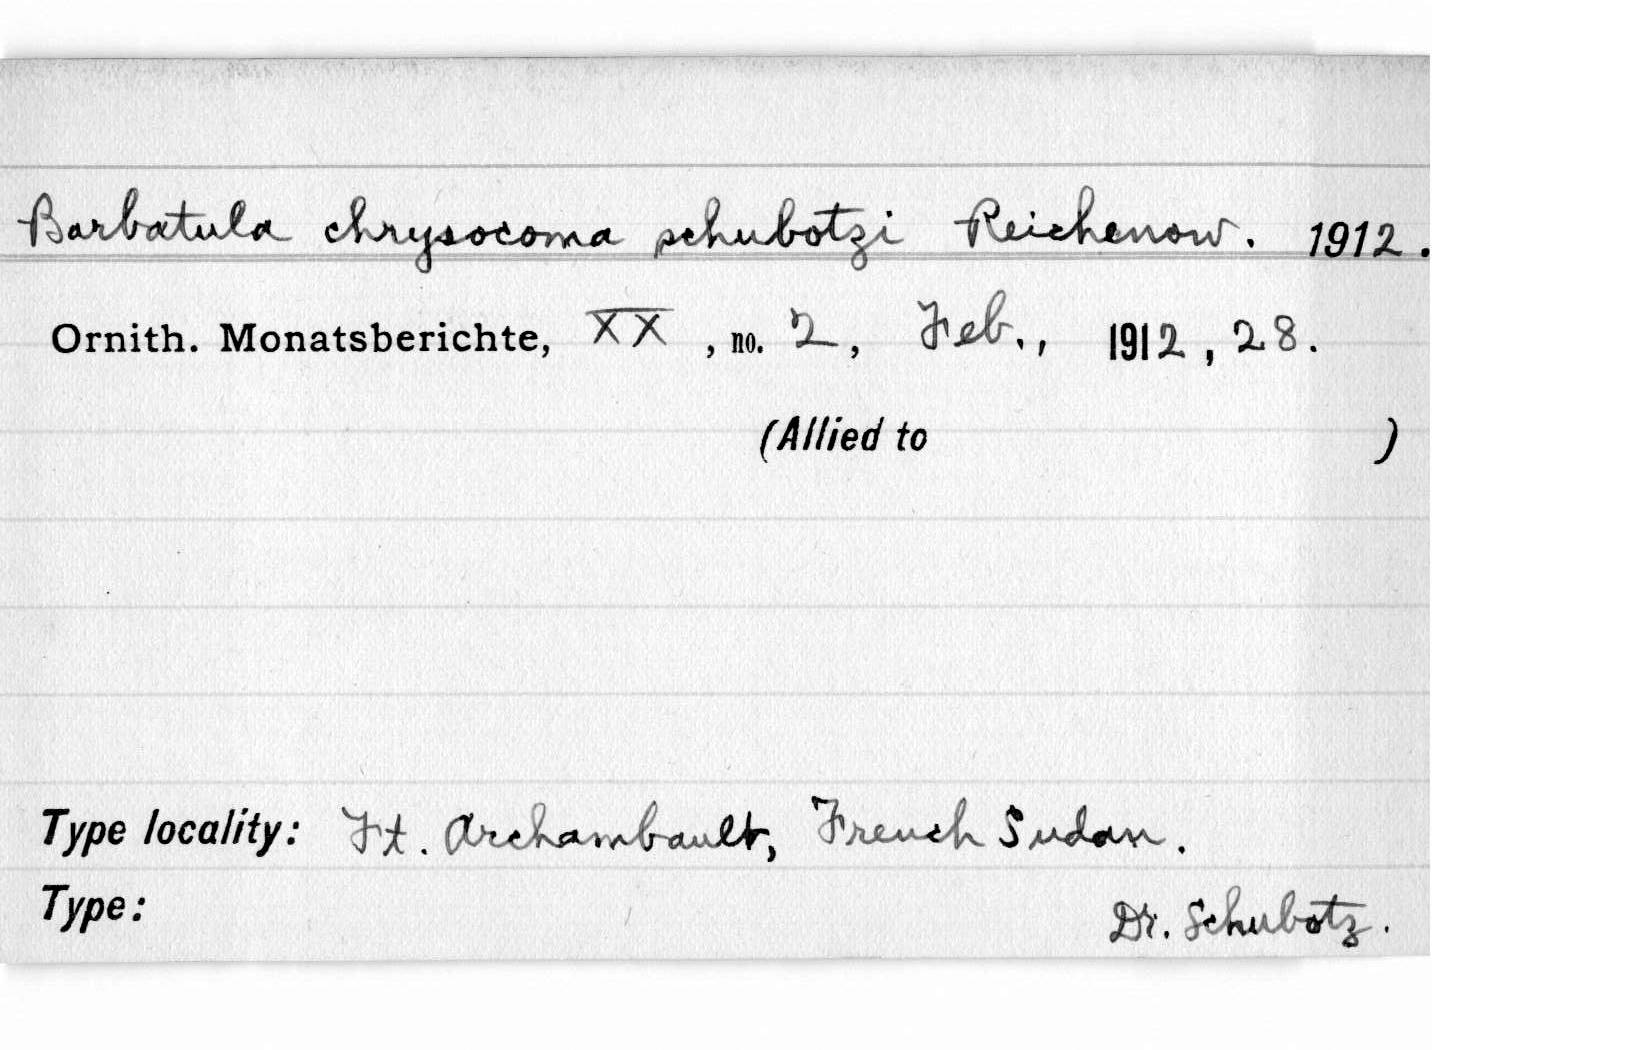 Barbatula chrysocoma schubotzi Reichenow. 1912.
Ornith. Monatsberichte, XX, no. 2, Feb., 1912, 28.
(Allied to )
Type locality: Ft. Archambault, French Sudan.
Type: Dr. Schubotz.